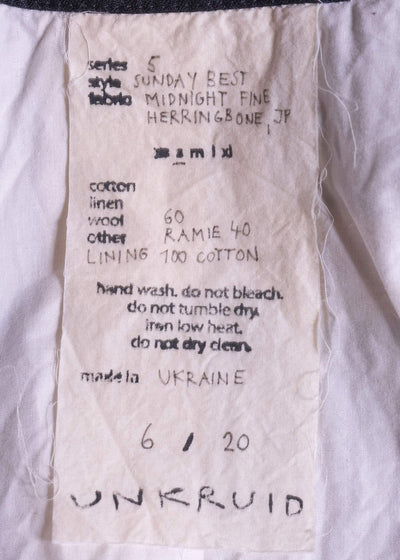 series 5
style SUNDAY BEST
fabric MIDNIGHT FINE
HERRINGBONE, JP
xs s m l xl
cotton
linen
wool 60
other RAMIE 40
LINING 100 COTTON
hand wash. do not bleach.
do not tumble dry.
iron low heat.
do not dry clean.
made in UKRAINE
6 / 20
UNKRUID